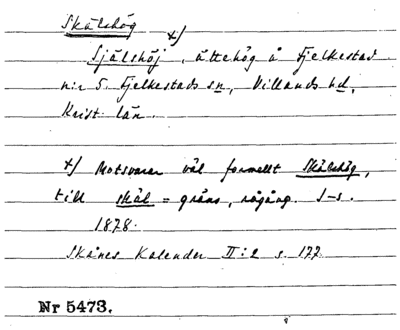 Skälshög
x)
Själshöj, ättehög å Fjelkestad
n:r 5. Fjelkestads sn, Villands hd,
Krist. län.
x) Motsvarar väl formellt Skälshög,
till skäl = gräns, rågång. J-s.
1878.
Skånes Kalender II:2 s. 177
Nr 5473.